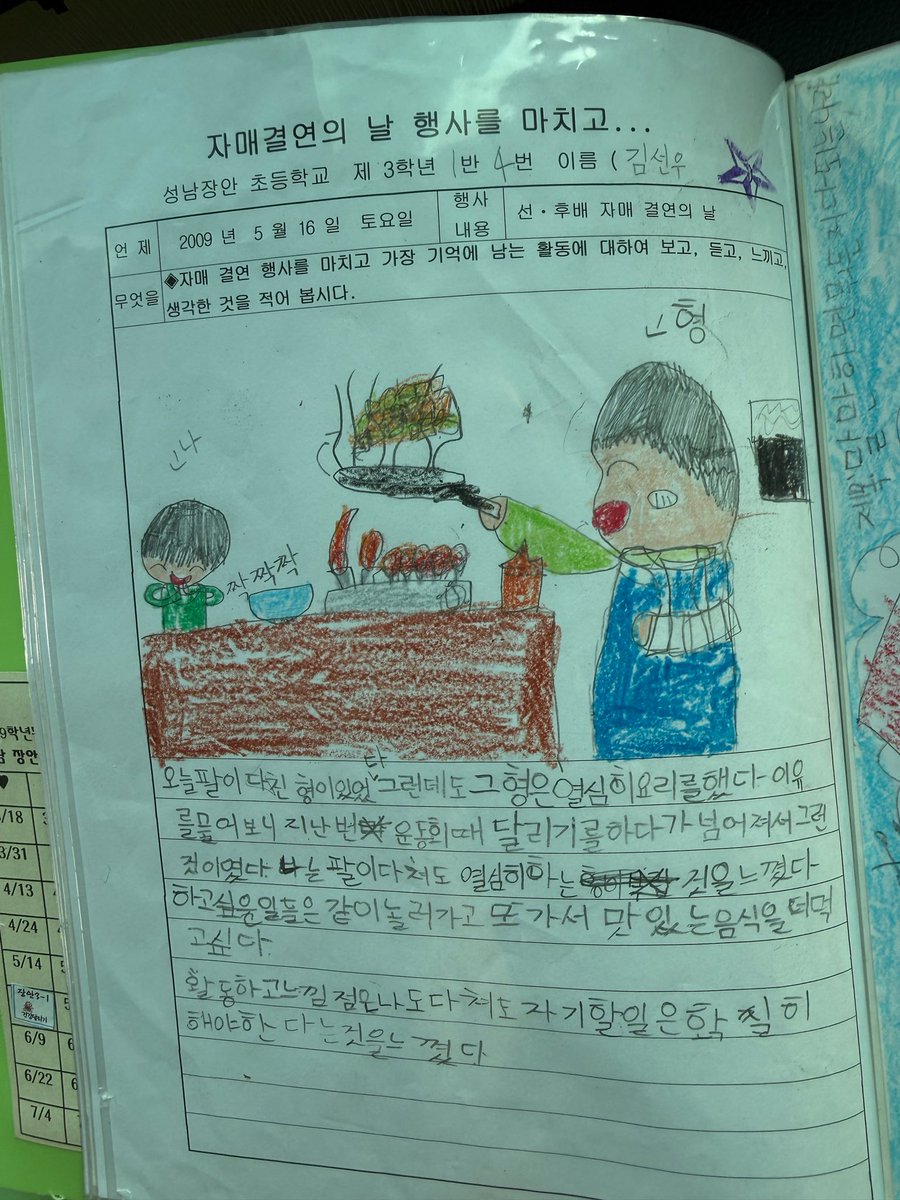 자매결연의 날 행사를 마치고...
성남장안 초등학교 제 3학년 1반 4번 이름 ( 김선우
언 제 2009 년 5 월 16 일 토요일 행사 내용 선·후배 자매 결연의 날
무엇을 ◈자매 결연 행사를 마치고 가장 기억에 남는 활동에 대하여 보고, 듣고, 느끼고,
생각한 것을 적어 봅시다.
형
나
짝짝짝
오늘팔이 다친 형이있었다 그런데도 그 형은 열심히요리를했다 이유
를물어보니 지난번 운동회때 달리기를하다가 넘어져서그런
것이였다 나는 팔이다쳐도 열심히하는 것을느꼈다
하고싶은일들은 같이놀러가고 또 가서 맛있는음식을 더먹
고싶다.
활동하고느낌점은나도다쳐도 자기할일은확실히
해야한다는것을느꼈다
9학년
장안
3/31
4/13
4/24
5/14
장안3-1
6/9
6/22
7/4